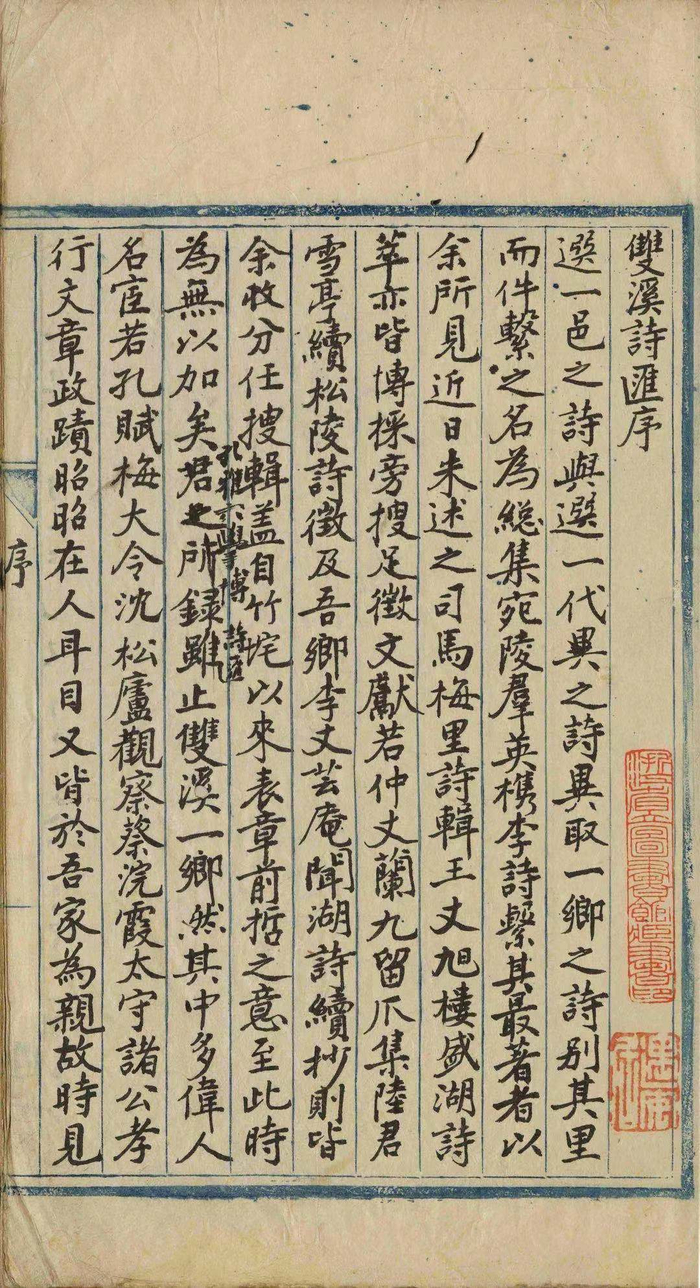 雙溪詩匯序
選一邑之詩與選一代異之詩異取一鄉之詩別其里
而件繫之名為緫集宛陵羣英檇李詩繫其最著者以
余所見近日未述之司馬梅里詩輯王丈旭樓盛湖詩
萃亦皆博採旁搜足徵文獻若仲丈蘭九留爪集陸君
雪亭續松陵詩徵及吾鄉李丈芸庵聞湖詩續抄則皆
余收分任搜輯盖自竹垞以來表章前哲之意至此時
為無以加矣君之所録雖止雙溪一鄉然其中多偉人
名宦若孔賦梅大令沈松廬觀察蔡浣霞太守諸公孝
行文章政蹟昭昭在人耳目又皆於吾家為親故時見
序
浙江省立圖書館藏書印